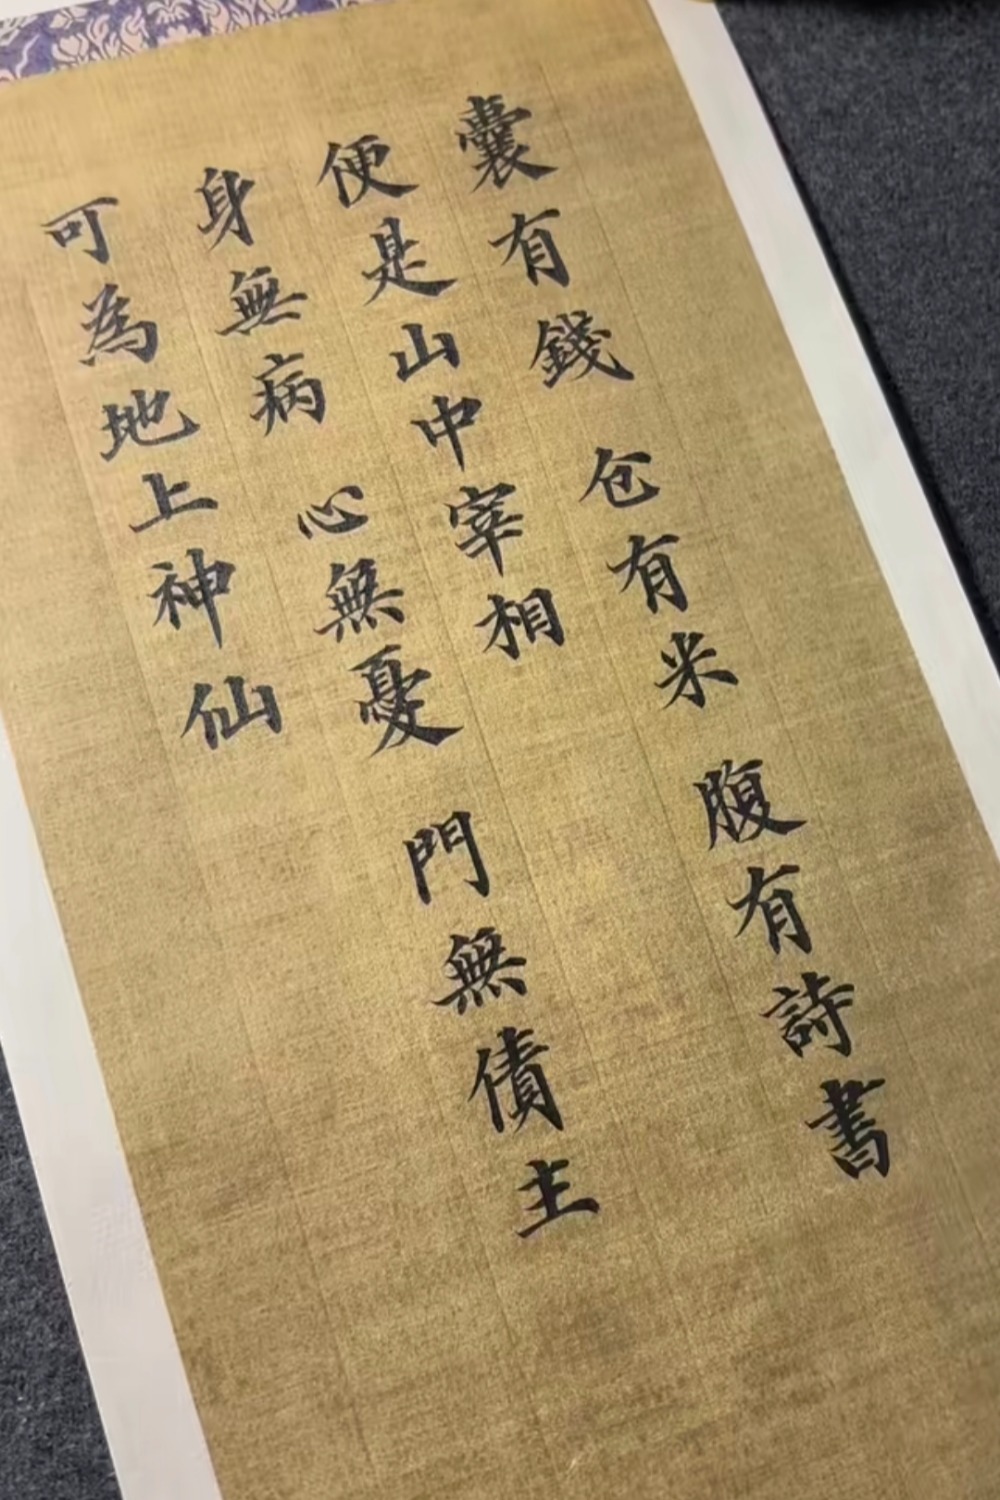 囊有錢 仓有米 腹有詩書
便是山中宰相
身無病 心無憂 門無債主
可為地上神仙